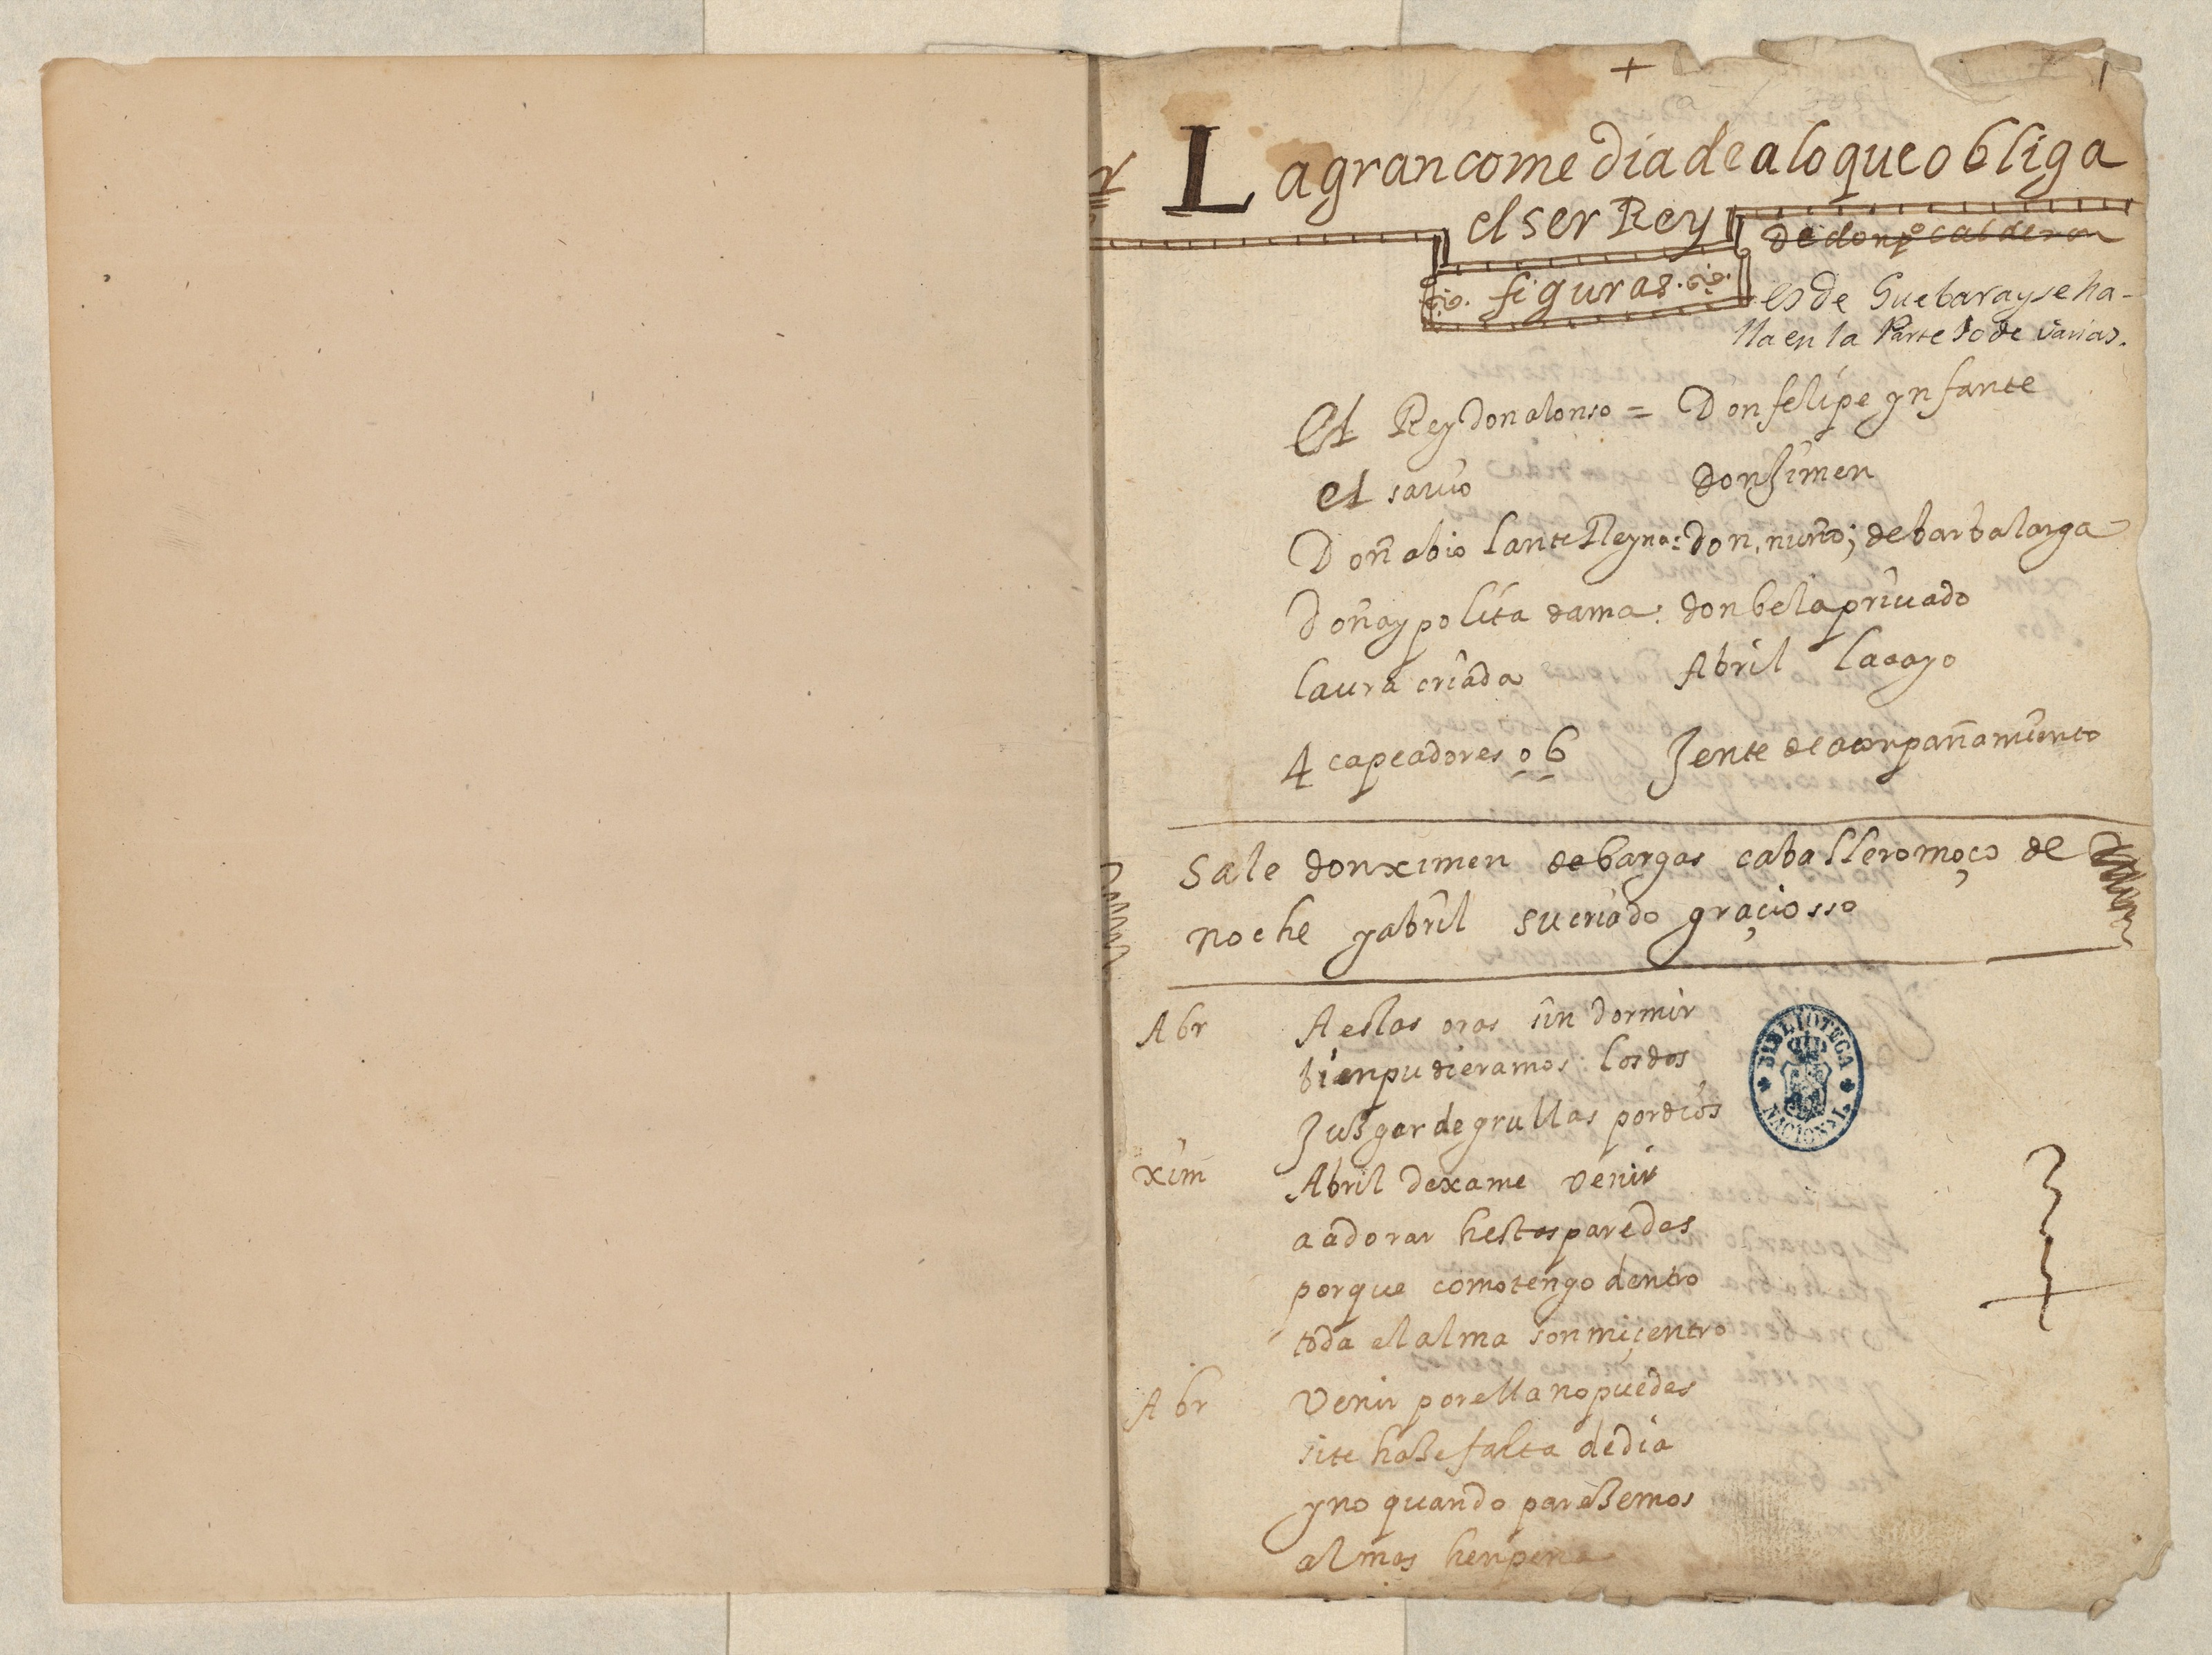 +
1
La gran comedia de a lo que obliga
el ser Rey
de don pº calderon
figuras
es de Guebara y se ha-
lla en la Parte 10 de varias.
El Rey don alonso = Don felipe ynfante
el savio donximen
Doña biolante Reyna: don nuño; de barba larga
Doña ypolita dama: don bela privado
laura criada Abril lacayo
4 capeadores o 6 Jente de acompañamiento
Sale don ximen de bargas caballero moço de
noche y abril su criado graçiosso
Abr A estas oras sin dormir
bien pudieramos los dos
Juzgar de grullas por dios
xim Abril dexame venir
a adorar hestas paredes
porque como tengo dentro
toda el alma son mi çentro
Abr Venir por ella no puedes
si te haze falta de dia
y no quando parezemos
almas hen pena
BIBLIOTECA NACIONAL